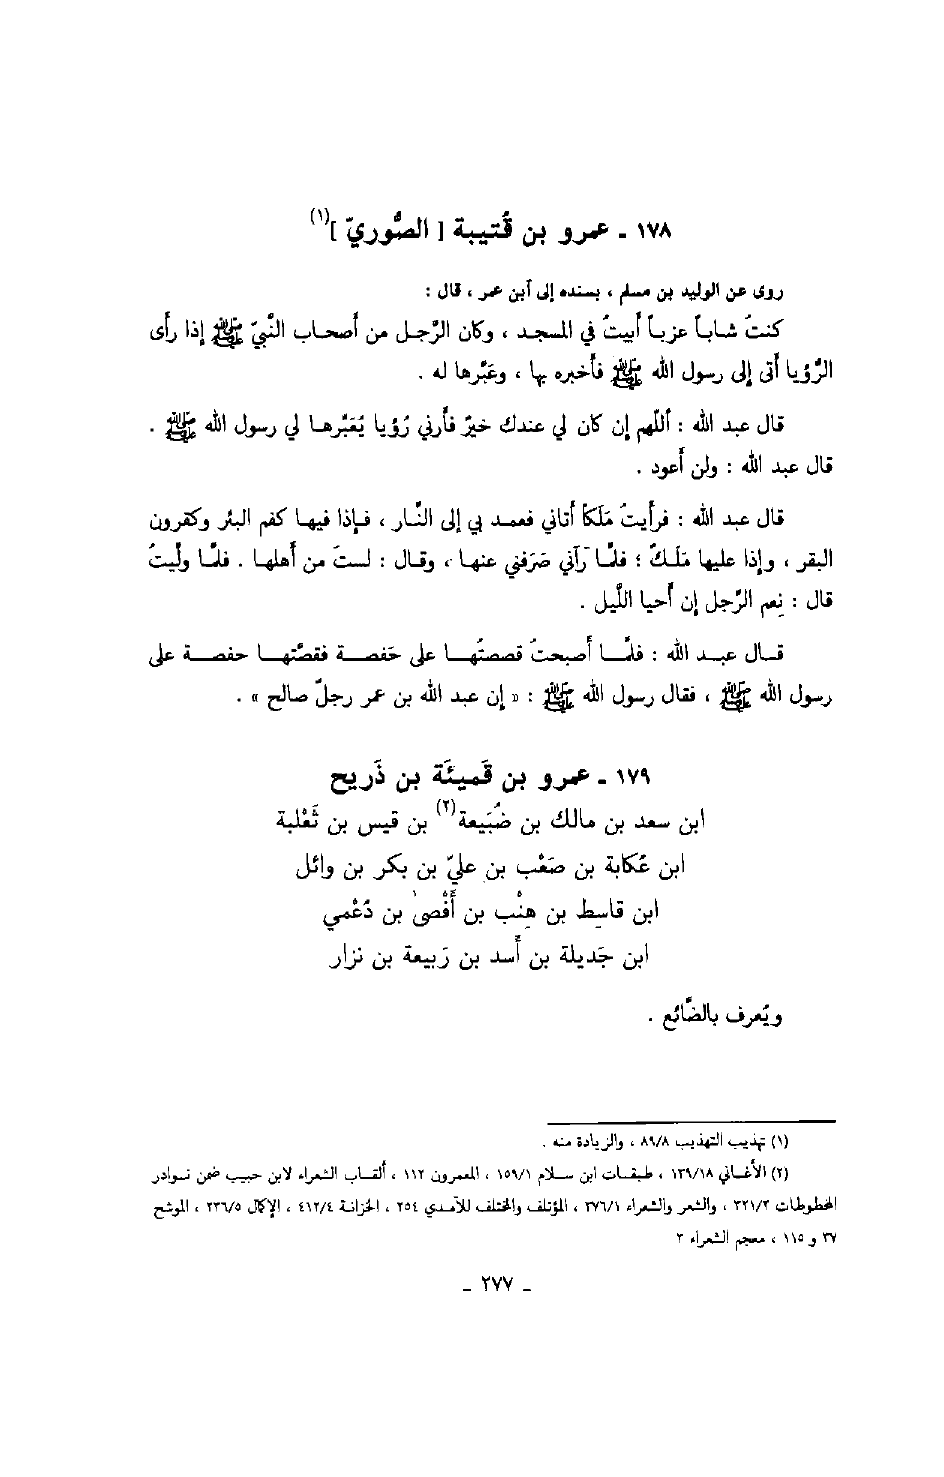 ١٧٨ ـ عمرو بن قُتيبة [ الصُّوريّ ](١)
روى عن الوليد بن مسلم ، بسنده إلى أبن عمر ، قال :
كنتُ شاباً عزباً أبيتُ في المسجد ، وكان الرَّجل من أصحاب النَّبيّ ﷺ إذا رأى
الرُّؤيا أتى إلى رسول الله ﷺ فأخبره بها ، وعَبَّرها له .
قال عبد الله : أللّهم إن كان لي عندك خيرٌ فأرني رُؤيا يُعَبِّرهـا لي رسول الله ﷺ .
قال عبد الله : ولن أعود .
قال عبد الله : فرأيتُ مَلَكاً أتاني فعمد بي إلى النَّار ، فـإذا فيهـا كفم البئر وكقرون
البقر ، وإذا عليها مَلَـكٌ ؛ فلمَّـا رَآني صَرَفني عنهـا ، وقـال : لستَ من أهلهـا . فلمَّـا ولَّيتُ
قال : نِعم الرَّجل إن أحيا اللَّيل .
قـال عبـد الله : فلمَّـا أصبحتُ قصصتُهـا على حَفصـة فقصَّتهـا حفصـة على
رسول الله ﷺ ، فقال رسول الله ﷺ : « إن عبد الله بن عمر رجلٌ صالح » .
١٧٩ ـ عمرو بن قَميئَة بن ذَريح
ابن سعد بن مالك بن ضُبَيعة(٢) بن قيس بن ثَعْلبة
ابن عُكابة بن صَعْب بن عليّ بن بكر بن وائل
ابن قاسِط بن هِنْب بن أَفْصىٰ بن دُعْمي
ابن جَديلة بن أَسد بن رَبيعة بن نزار
ويُعرف بالضَّائع .
(١) تهذيب التهذيب ٨٩/٨ ، والزيادة منه .
(٢) الأغـاني ١٣٩/١٨ ، طبقـات ابن سـلام ١٥٩/١ ، المعمرون ١١٢ ، ألقـاب الشعراء لابن حبيب ضمن نـوادر
المخطوطات ٣٢١/٢ ، والشعر والشعراء ٣٧٦/١ ، المؤتلف والمختلف للآمدي ٢٥٤ ، الخزانـة ٤١٢/٤ ، الإكال ٢٣٦/٥ ، الموشح
٣٧ و ١١٥ ، معجم الشعراء ٣
ـ ٢٧٧ ـ